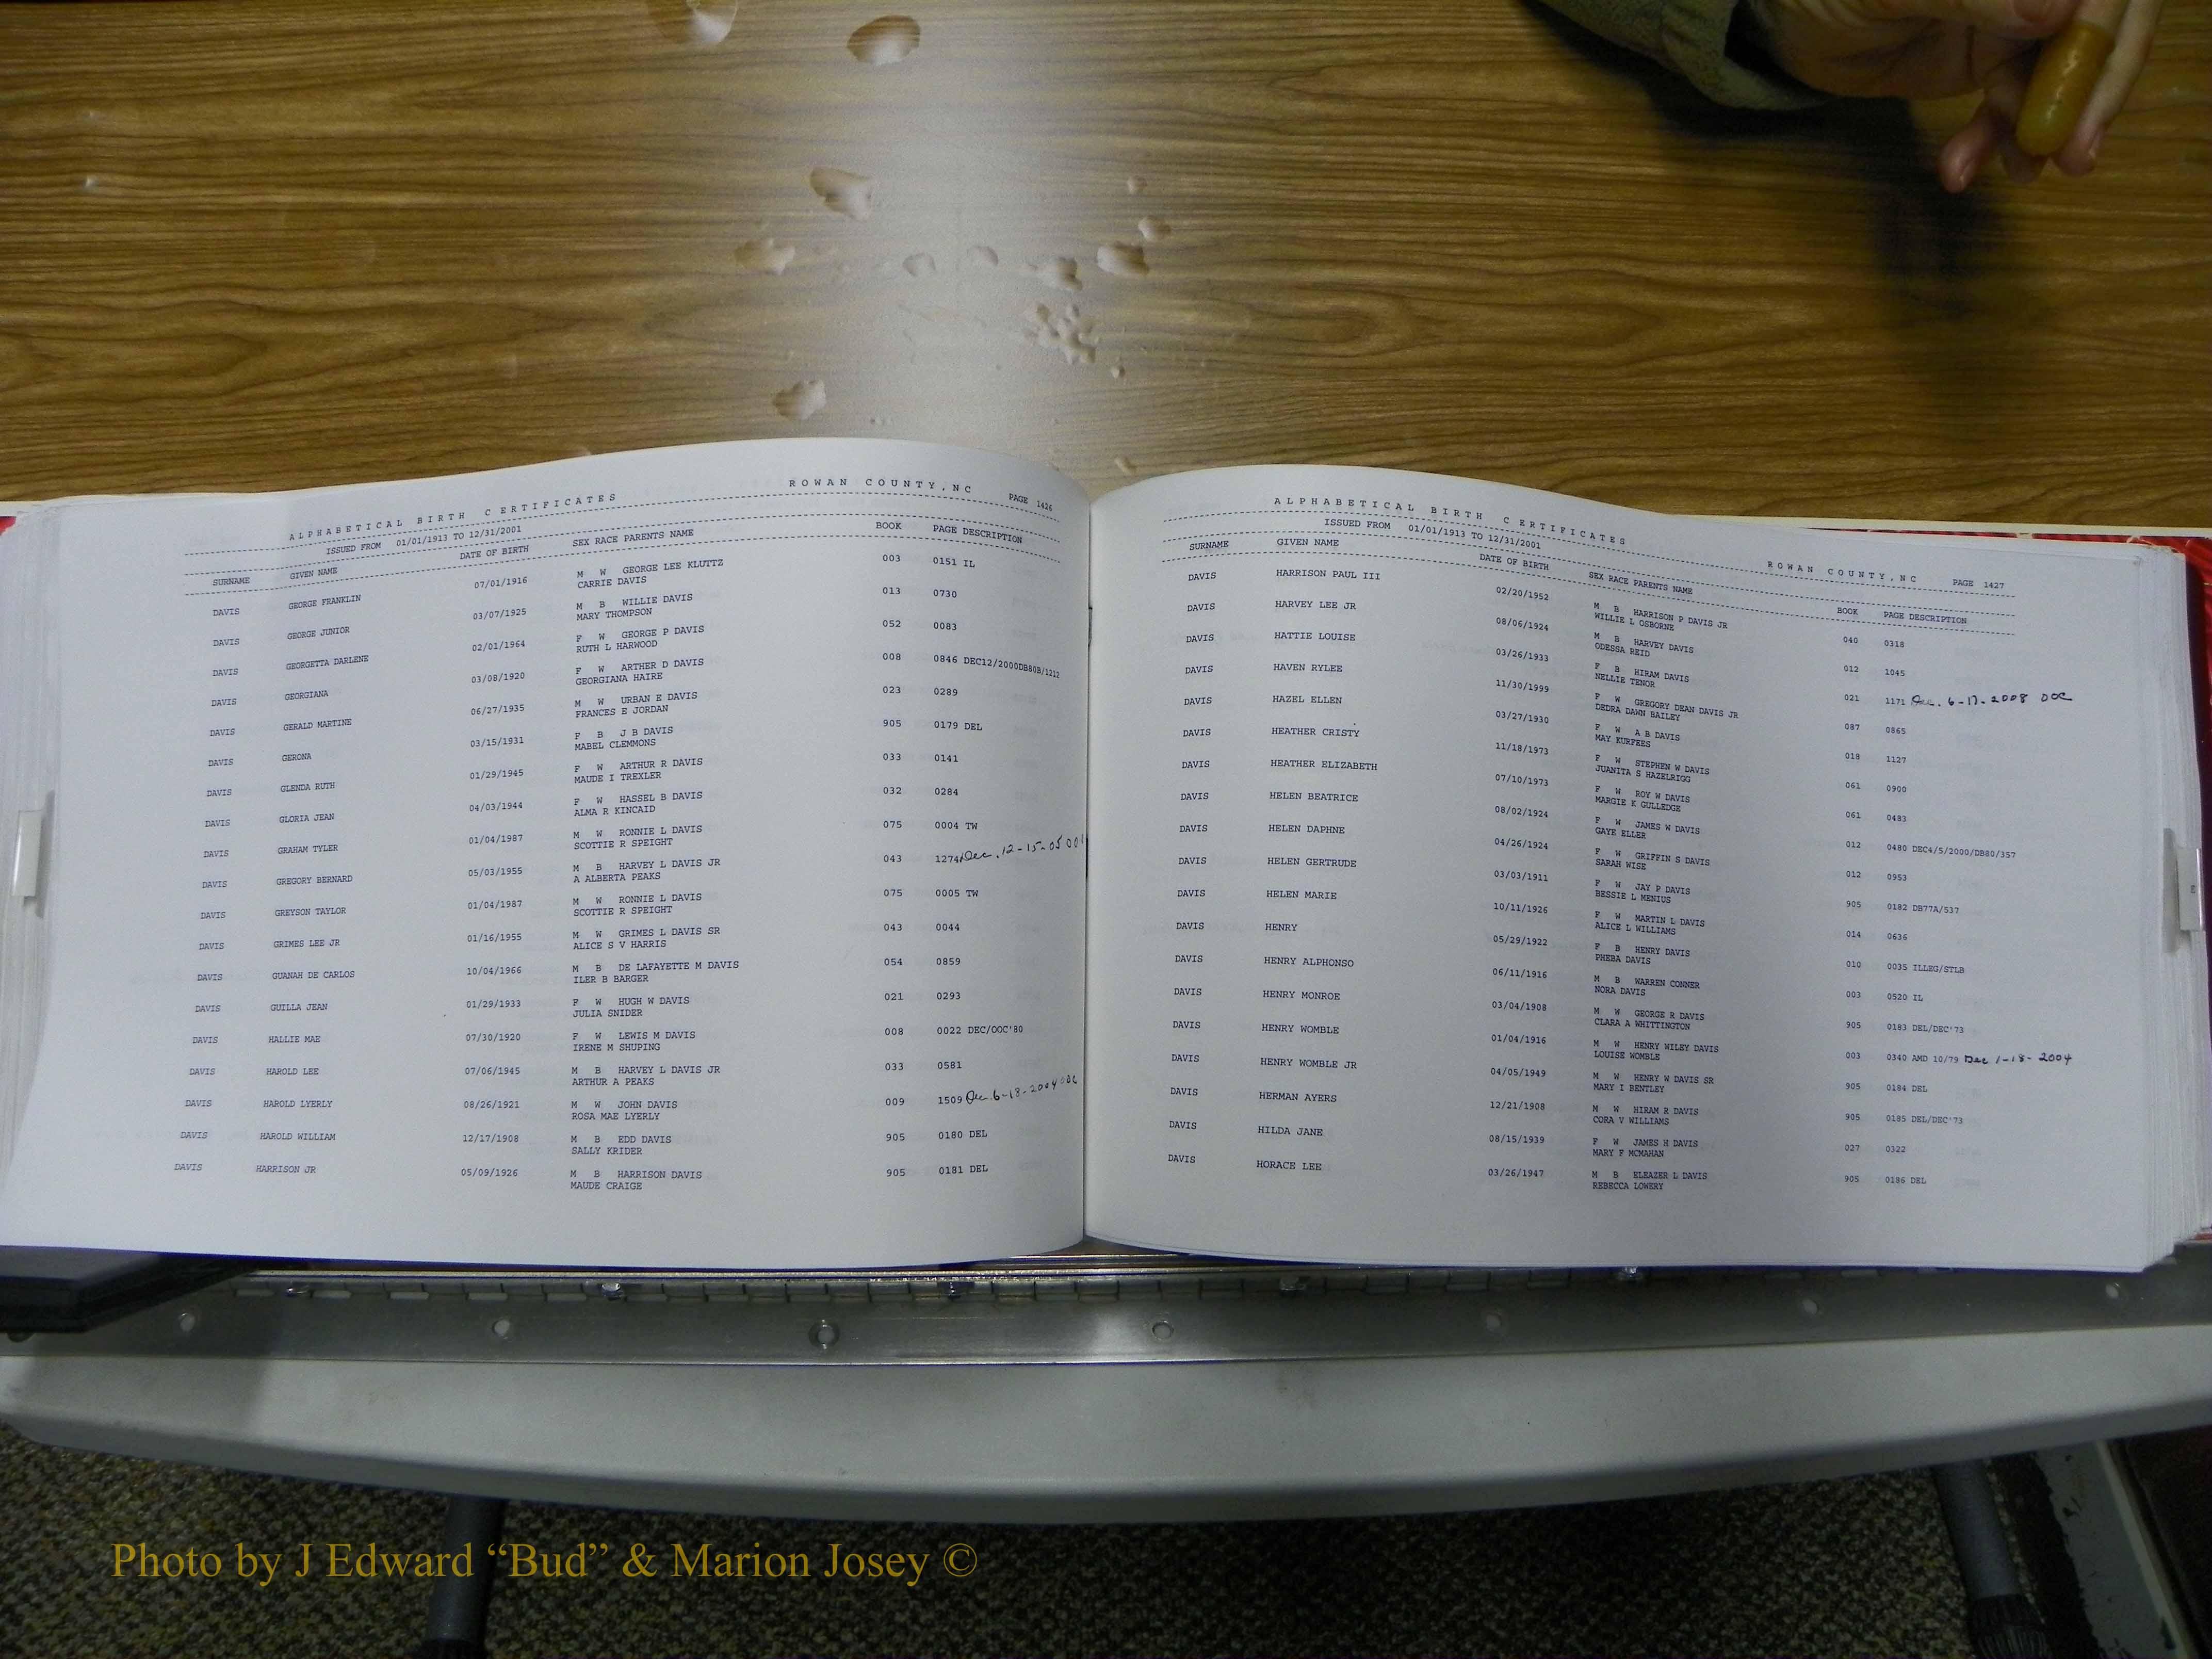 ALPHABETICAL BIRTH CERTIFICATES ROWAN COUNTY, NC PAGE 1426
ISSUED FROM 01/01/1913 TO 12/31/2001
SURNAME GIVEN NAME DATE OF BIRTH SEX RACE PARENTS NAME BOOK PAGE DESCRIPTION
DAVIS GEORGE FRANKLIN 07/01/1916 M W GEORGE LEE KLUTTZ 003 0151 IL
CARRIE DAVIS
DAVIS GEORGE JUNIOR 03/07/1925 M B WILLIE DAVIS 013 0730
MARY THOMPSON
DAVIS GEORGETTA DARLENE 02/01/1964 F W GEORGE P DAVIS 052 0083
RUTH L HARWOOD
DAVIS GEORGIANA 03/08/1920 F W ARTHER D DAVIS 008 0846 DEC12/2000DB80B/1212
GEORGIANA HAIRE
DAVIS GERALD MARTINE 06/27/1935 M W URBAN E DAVIS 023 0289
FRANCES E JORDAN
DAVIS GERONA 03/15/1931 F B J B DAVIS 905 0179 DEL
MABEL CLEMMONS
DAVIS GLENDA RUTH 01/29/1945 F W ARTHUR R DAVIS 033 0141
MAUDE I TREXLER
DAVIS GLORIA JEAN 04/03/1944 F W HASSEL B DAVIS 032 0284
ALMA R KINCAID
DAVIS GRAHAM TYLER 01/04/1987 M W RONNIE L DAVIS 075 0004 TW
SCOTTIE R SPEIGHT
DAVIS GREGORY BERNARD 05/03/1955 M B HARVEY L DAVIS JR 043 1274 Dec. 12-15-05
A ALBERTA PEAKS
DAVIS GREYSON TAYLOR 01/04/1987 M W RONNIE L DAVIS 075 0005 TW
SCOTTIE R SPEIGHT
DAVIS GRIMES LEE JR 01/16/1955 M W GRIMES L DAVIS SR 043 0044
ALICE S V HARRIS
DAVIS GUANAH DE CARLOS 10/04/1966 M B DE LAFAYETTE M DAVIS 054 0859
ILER B BARGER
DAVIS GUILLA JEAN 01/29/1933 F W HUGH W DAVIS 021 0293
JULIA SNIDER
DAVIS HALLIE MAE 07/30/1920 F W LEWIS M DAVIS 008 0022 DEC/OOC'80
IRENE M SHUPING
DAVIS HAROLD LEE 07/06/1945 M B HARVEY L DAVIS JR 033 0581
ARTHUR A PEAKS
DAVIS HAROLD LYERLY 08/26/1921 M W JOHN DAVIS 009 1509 Dec. 6-18-2004 OOC
ROSA MAE LYERLY
DAVIS HAROLD WILLIAM 12/17/1908 M B EDD DAVIS 905 0180 DEL
SALLY KRIDER
DAVIS HARRISON JR 05/09/1926 M B HARRISON DAVIS 905 0181 DEL
MAUDE CRAIGE
ALPHABETICAL BIRTH CERTIFICATES ROWAN COUNTY, NC PAGE 1427
ISSUED FROM 01/01/1913 TO 12/31/2001
SURNAME GIVEN NAME DATE OF BIRTH SEX RACE PARENTS NAME BOOK PAGE DESCRIPTION
DAVIS HARRISON PAUL III 02/20/1952 M B HARRISON P DAVIS JR 040 0318
WILLIE L OSBORNE
DAVIS HARVEY LEE JR 08/06/1924 M B HARVEY DAVIS 012 1045
ODESSA REID
DAVIS HATTIE LOUISE 03/26/1933 F B HIRAM DAVIS 021 1171 Dec. 6-17-2008 OOC
NELLIE TENOR
DAVIS HAVEN RYLEE 11/30/1999 F W GREGORY DEAN DAVIS JR 087 0865
DEDRA DAWN BAILEY
DAVIS HAZEL ELLEN 03/27/1930 F W A B DAVIS 018 1127
MAY KURFEES
DAVIS HEATHER CRISTY 11/18/1973 F W STEPHEN W DAVIS 061 0900
JUANITA S HAZELRIGG
DAVIS HEATHER ELIZABETH 07/10/1973 F W ROY W DAVIS 061 0483
MARGIE K GULLEDGE
DAVIS HELEN BEATRICE 08/02/1924 F W JAMES W DAVIS 012 0480 DEC4/5/2000/DB80/357
GAYE ELLER
DAVIS HELEN DAPHNE 04/26/1924 F W GRIFFIN S DAVIS 012 0953
SARAH WISE
DAVIS HELEN GERTRUDE 03/03/1911 F W JAY P DAVIS 905 0182 DB77A/537
BESSIE L MENIUS
DAVIS HELEN MARIE 10/11/1926 F W MARTIN L DAVIS 014 0636
ALICE L WILLIAMS
DAVIS HENRY 05/29/1922 F B HENRY DAVIS 010 0035 ILLEG/STLB
PHEBA DAVIS
DAVIS HENRY ALPHONSO 06/11/1916 M B WARREN CONNER 003 0520 IL
NORA DAVIS
DAVIS HENRY MONROE 03/04/1908 M W GEORGE R DAVIS 905 0183 DEL/DEC'73
CLARA A WHITTINGTON
DAVIS HENRY WOMBLE 01/04/1916 M W HENRY WILEY DAVIS 003 0340 AMD 10/79 Dec 1-18-2004
LOUISE WOMBLE
DAVIS HENRY WOMBLE JR 04/05/1949 M W HENRY W DAVIS SR 905 0184 DEL
MARY I BENTLEY
DAVIS HERMAN AYERS 12/21/1908 M W HIRAM R DAVIS 905 0185 DEL/DEC'73
CORA V WILLIAMS
DAVIS HILDA JANE 08/15/1939 F W JAMES H DAVIS 027 0322
MARY F MCMAHAN
DAVIS HORACE LEE 03/26/1947 M B ELEAZER L DAVIS 905 0186 DEL
REBECCA LOWERY
Photo by J Edward “Bud” & Marion Josey ©